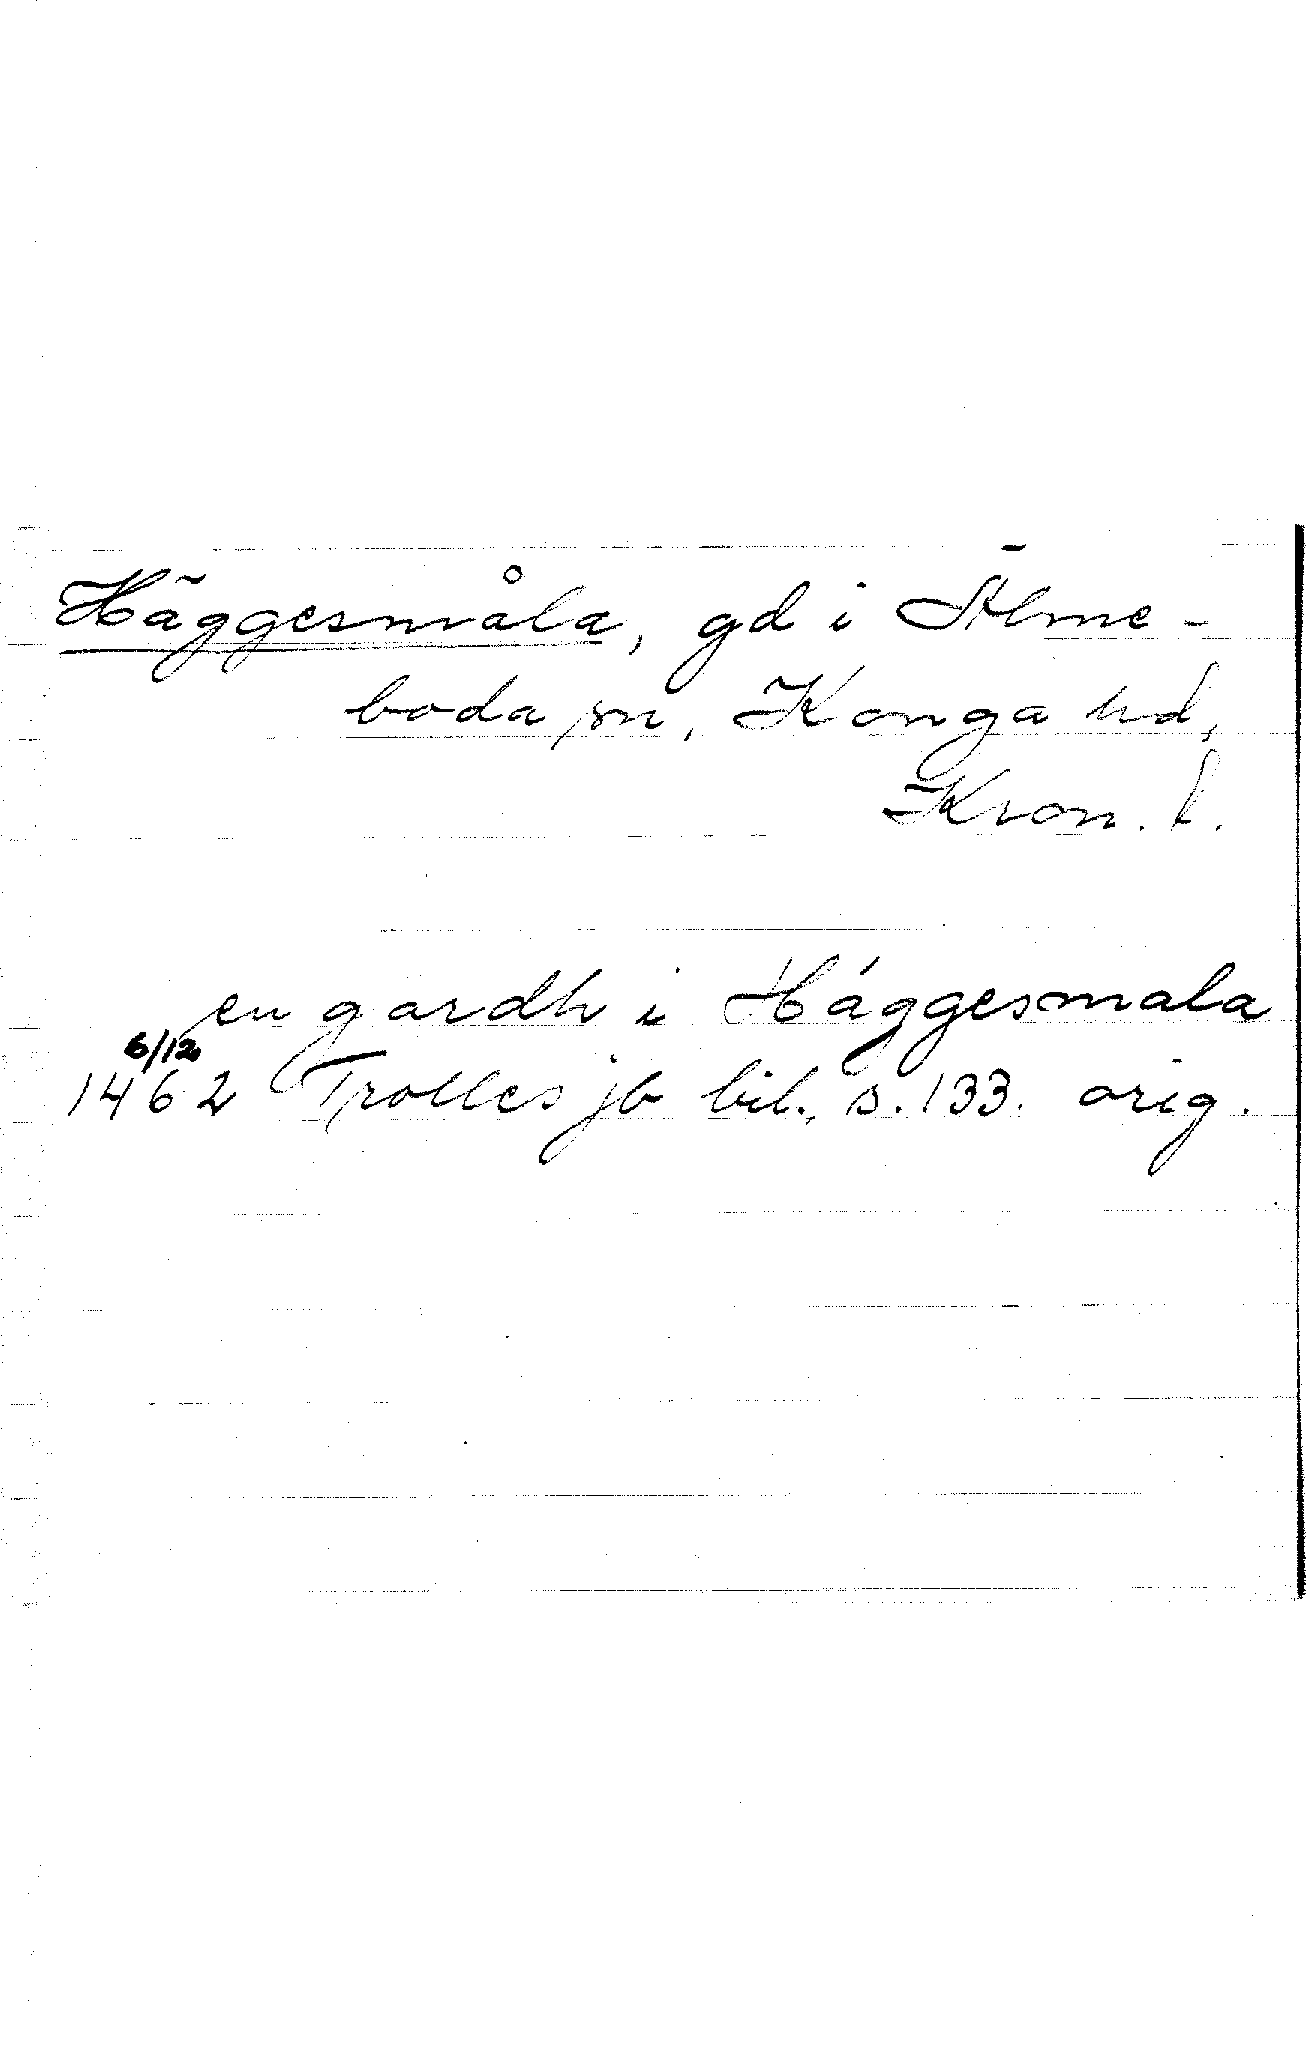 Häggesmåla, gd i Älme-
boda sn, Konga hd,
Kron. l.
en gardh i Häggesmala
6/12
1462 Trolles jb bil., s. 133. orig.